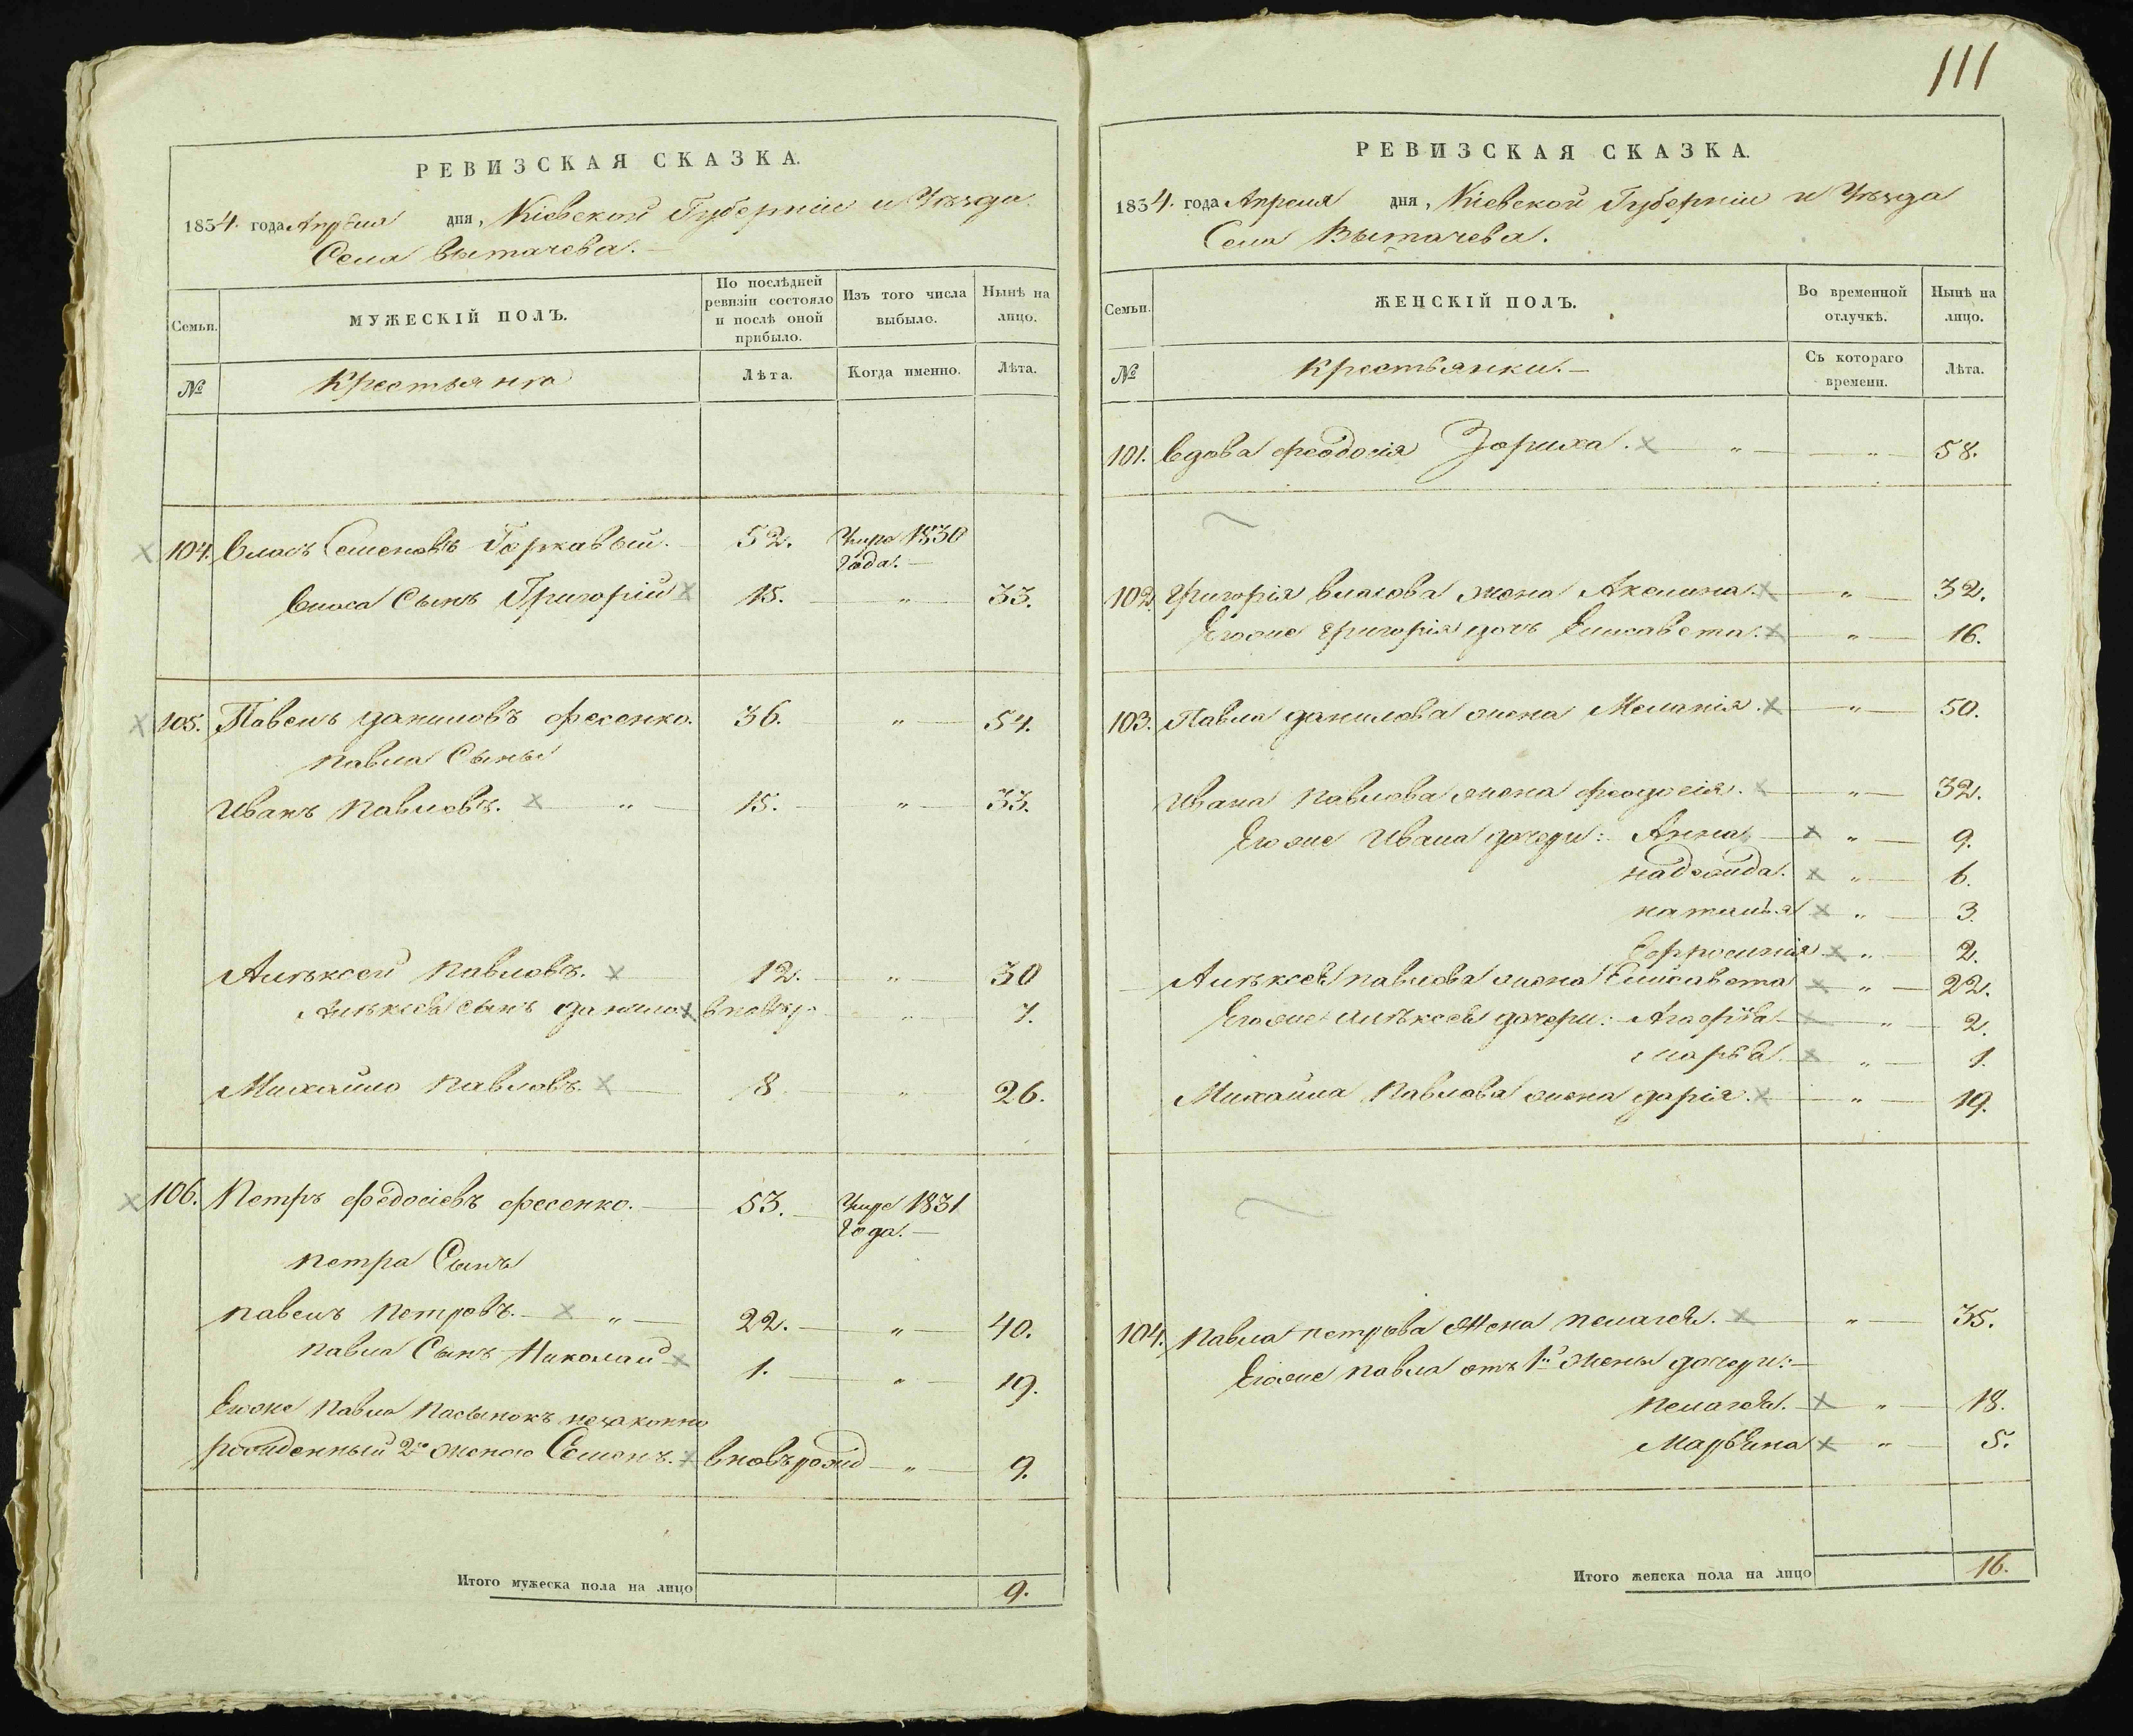 РЕВИЗСКАЯ СКАЗКА.
1834. года Апреля дня, Кіевской Губерніи и Уѣзда
Села Вытачева.
Семьи.
МУЖЕСКІЙ ПОЛЪ.
По послѣдней
ревизіи состояло
и послѣ оной
прибыло.
Изъ того числа
выбыло.
Нынѣ на
лицо.
№
Крестьяне
Лѣта.
Когда именно.
Лѣта.
104. Власъ Семеновъ Горкавый. 52. Умре 1830
года.
Власа Сынъ Григорій 15. " 33.
105. Павелъ Даниловъ Фесенко. 36. " 54.
Павла Сыны
Иванъ Павловъ. " 15. " 33.
Алѣксей Павловъ. 12. " 30
Алѣксея сынъ Данило вновьр " 7.
Михайло Павловъ. 8 " 26.
106. Петръ Федосіевъ Фесенко. 53. Умре 1831
Года.
Петра Сынъ
Павелъ Петровъ. " 22. " 40.
Павла Сынъ Николай 1. " 19.
Егоже Павла пасынокъ незаконно
рожденный 2ю женою Семенъ. вновьрожд " 9.
Итого мужеска пола на лицо 9.
111
РЕВИЗСКАЯ СКАЗКА.
1834. года Апреля дня, Кіевской Губерніи и Уѣзда
Села Вытачева.
Семьи.
ЖЕНСКІЙ ПОЛЪ.
Во временной
отлучкѣ.
Нынѣ на
лицо.
№
Крестьянки.
Съ котораго
времени.
Лѣта.
101. Вдова Феодосія Зориха. " " 58.
102. Григорія Власова жена Акелина. " 32.
Егоже Григорія дочь Елисавета. " 16.
103. Павла Данилова жена Меланія. " 50.
Ивана Павлова жена Феодосія. " 32.
Егоже Ивана дочери: Анна " 9.
Надежда. " 6.
Наталія " 3.
Ефросинія " 2.
Алѣксея Павлова жена Елисавета " 22.
Егоже Алѣксея дочери: Агафія " 2.
Марья. " 1.
Михайла Павлова жена Дарія. " 19.
104. Павла Петрова Жена Пелагея. " 35.
Егоже Павла отъ 1й жены дочери:
Пелагея. " 18.
Марьяна " 5.
Итого женска пола на лицо 16.